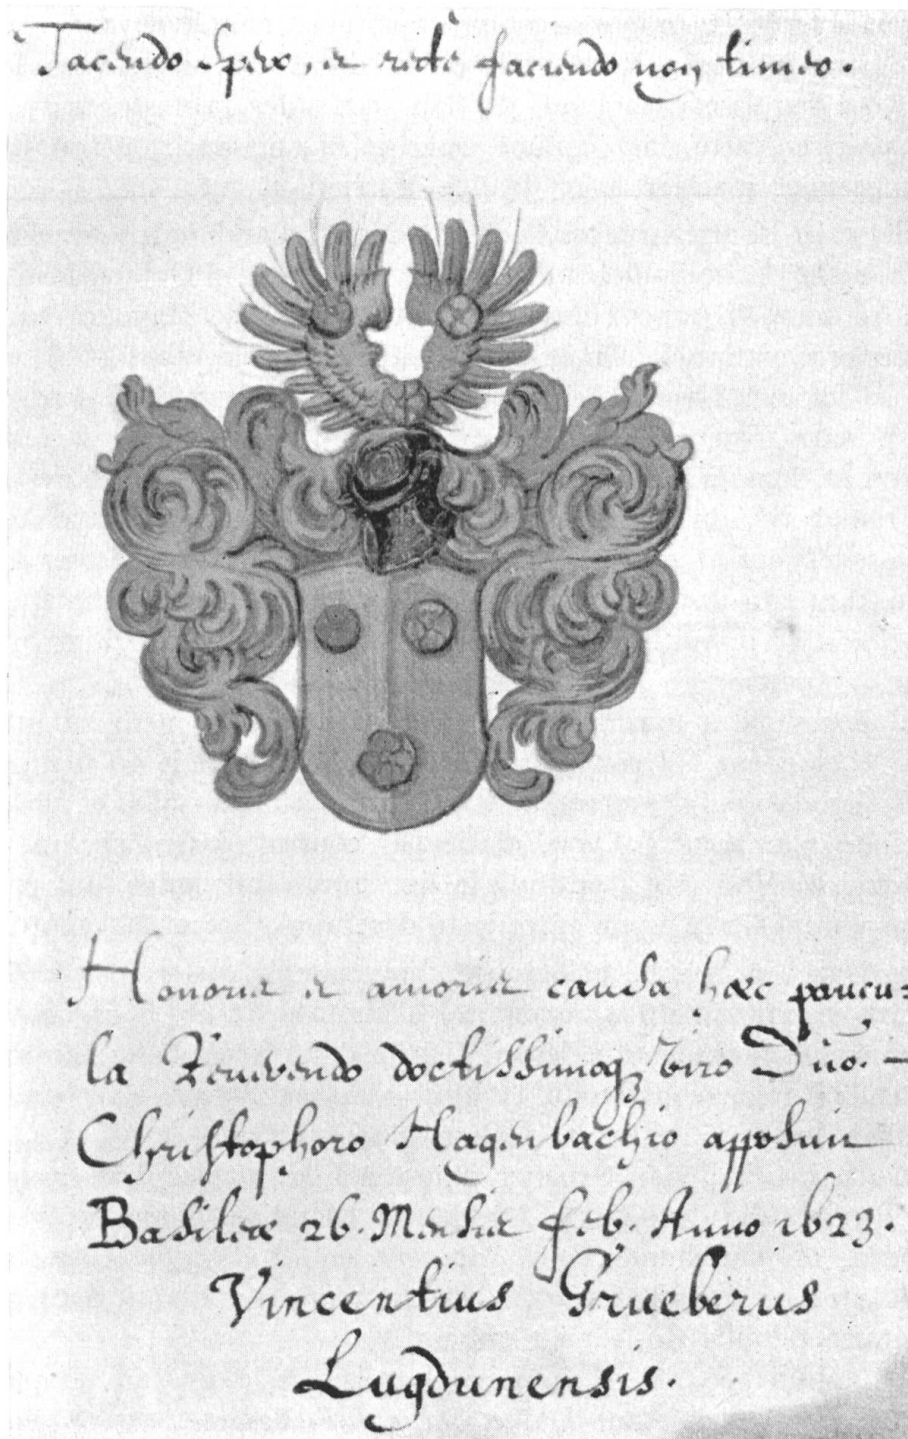 Tacendo Spero, et recte faciendo non timeo.
Honoris et amoris causa hæc paucu=
la Reverendo doctissimoq3 Viro Dno.
Christophoro Hagenbachio apposuit
Basileæ 26. Mensis feb. Anno 1623.
Vincentius Grueberus
Lugdunensis.